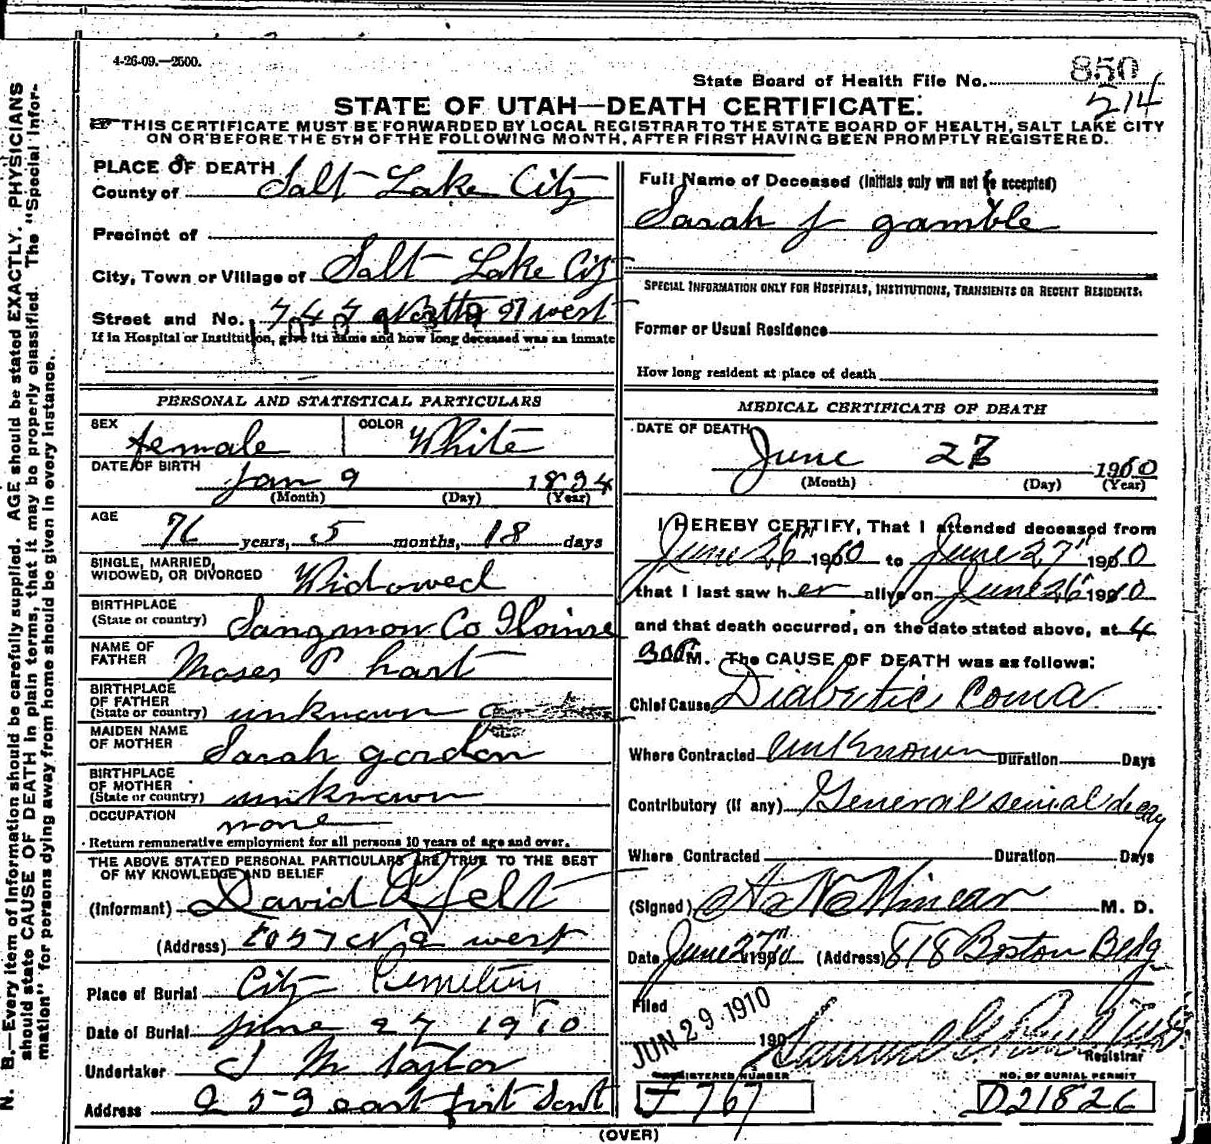 4-26-09.—2500.
State Board of Health File No. 850
514
STATE OF UTAH—DEATH CERTIFICATE.
THIS CERTIFICATE MUST BE FORWARDED BY LOCAL REGISTRAR TO THE STATE BOARD OF HEALTH, SALT LAKE CITY
ON OR BEFORE THE 5TH OF THE FOLLOWING MONTH, AFTER FIRST HAVING BEEN PROMPTLY REGISTERED.
PLACE OF DEATH
County of Salt Lake City
Precinct of
City, Town or Village of Salt Lake City
Street and No. 747 North west
If in Hospital or Institution, give its name and how long deceased was an inmate
PERSONAL AND STATISTICAL PARTICULARS
SEX female COLOR White
DATE OF BIRTH Jan 9 1834
(Month) (Day) (Year)
AGE 76 years, 5 months, 18 days
SINGLE, MARRIED,
WIDOWED, OR DIVORCED Widowed
BIRTHPLACE
(State or country) Sangmon Co
NAME OF
FATHER Moses P hart
BIRTHPLACE
OF FATHER
(State or country) unknown
MAIDEN NAME
OF MOTHER Sarah gordon
BIRTHPLACE
OF MOTHER
(State or country) unknown
OCCUPATION none
Return remunerative employment for all persons 10 years of age and over.
THE ABOVE STATED PERSONAL PARTICULARS ARE TRUE TO THE BEST
OF MY KNOWLEDGE AND BELIEF
(Informant) David felt
(Address) west
Place of Burial City Cemetery
Date of Burial june 27 1910
Undertaker S M Taylor
Address 253 east first South
Full Name of Deceased (Initials only will not be accepted)
Sarah J gamble
SPECIAL INFORMATION ONLY FOR HOSPITALS, INSTITUTIONS, TRANSIENTS OR RECENT RESIDENTS.
Former or Usual Residence
How long resident at place of death
MEDICAL CERTIFICATE OF DEATH
DATE OF DEATH
June 27 1910
(Month) (Day) (Year)
I HEREBY CERTIFY, That I attended deceased from
June 26th 1910 to June 27th 1910
that I last saw her alive on June 26th 1910
and that death occurred, on the date stated above, at 4
M. The CAUSE OF DEATH was as follows:
Chief Cause Diabetic Coma
Where Contracted Unknown Duration Days
Contributory (if any) General senial decay
Where Contracted Duration Days
(Signed) M. D.
Date June 27th 1910 (Address) 818 Boston Bldg
Filed
JUN 29 1910 190 Samuel
Registrar
REGISTERED NUMBER NO. OF BURIAL PERMIT
J 767 D21826
(OVER)
N. B.—Every item of information should be carefully supplied. AGE should be stated EXACTLY. PHYSICIANS
should state CAUSE OF DEATH in plain terms, that it may be properly classified. The "Special Infor-
mation" for persons dying away from home should be given in every instance.